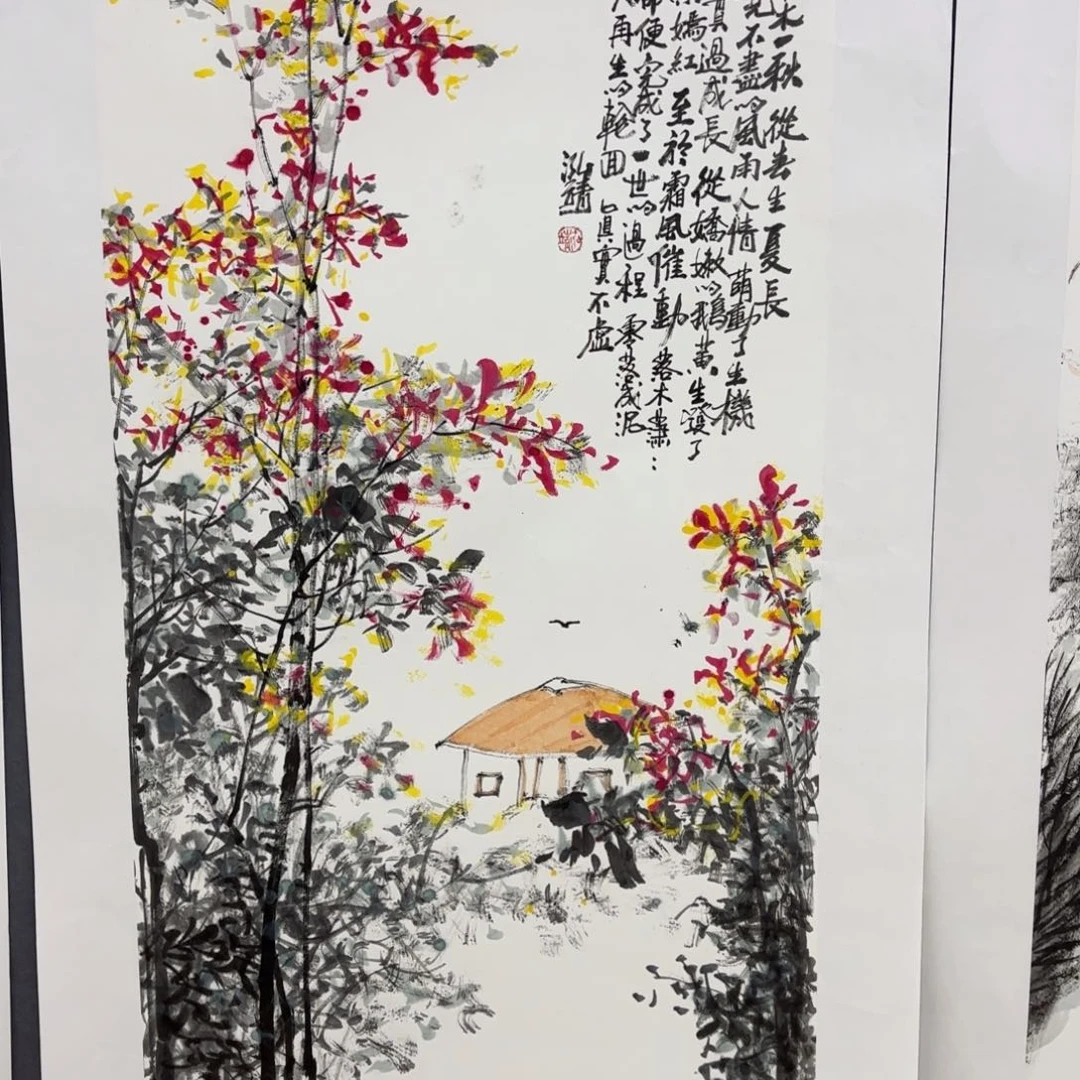 木一秋 從春生 夏長
不盡的風雨人情 萌動了生機
過成長 從嬌嫩的鵝黃 生發了
嬌紅 至於霜風催動 落木蕭:
便完成了一世的過程 零落成泥
再生的輪回 真實不虛